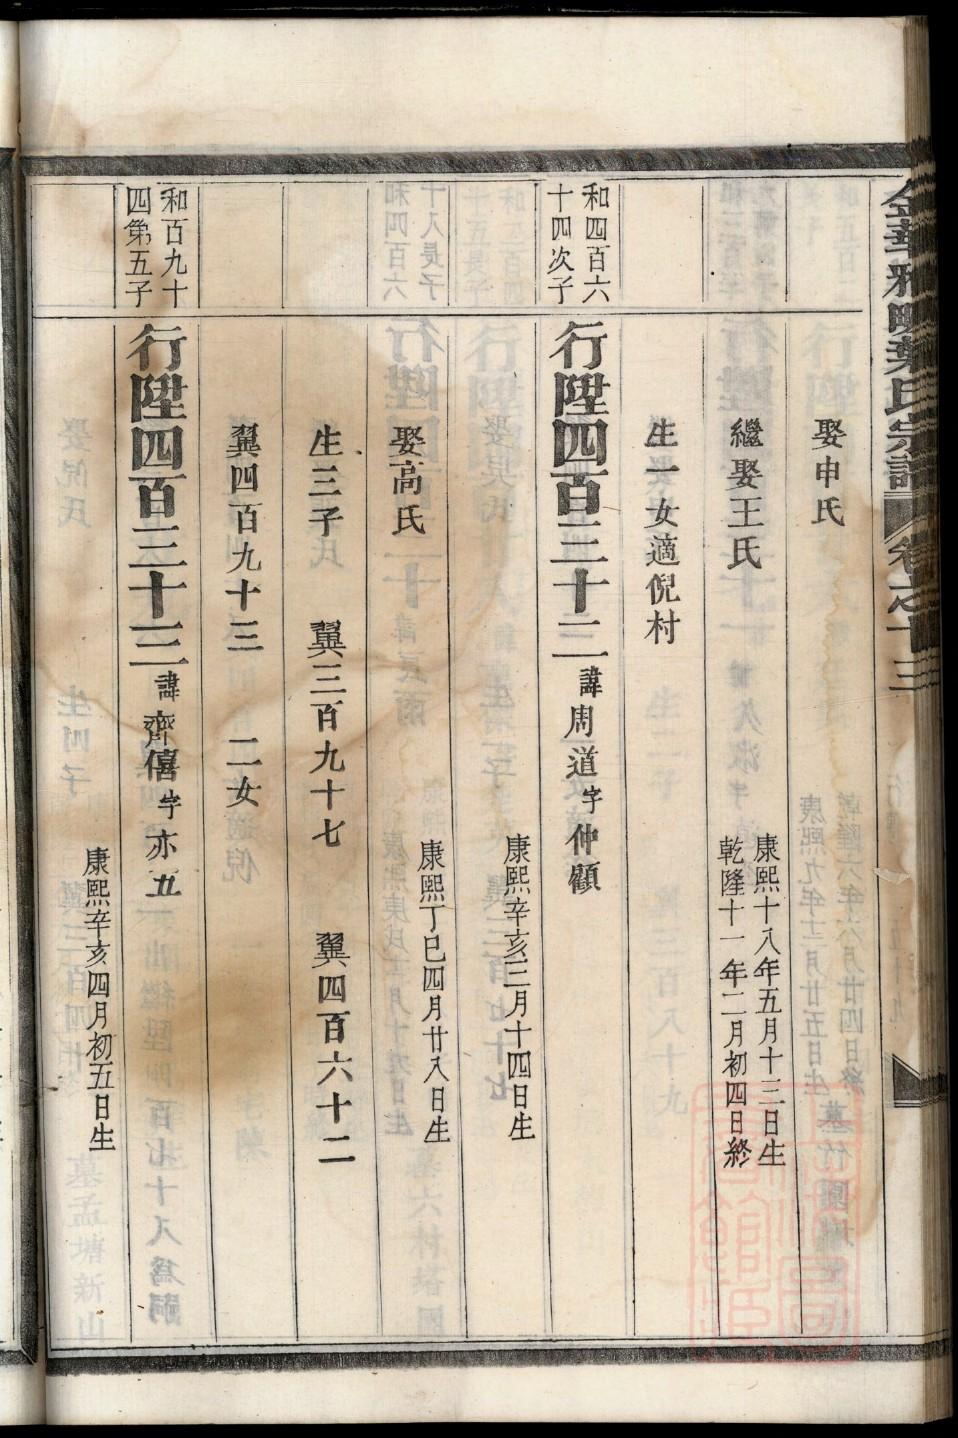 金華雅畈葉氏宗譜 卷之十三
娶申氏
繼娶王氏
康熙十八年五月十三日生
乾隆十一年二月初四日終
生一女適倪村
和四百六
十四次子
行陞四百三十二 諱周道 字仲顧
康熙辛亥三月十四日生
娶高氏
康熙丁巳四月廿八日生
生三子 翼三百九十七 翼四百六十二
翼四百九十三 二女
和百九十
四第五子
行陞四百三十三 諱齊僖 字亦五
康熙辛亥四月初五日生